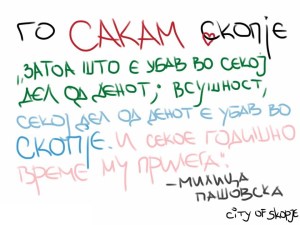 ГО САКАМ СКОПЈЕ
„ЗАТОА ШТО Е УБАВ ВО СЕКОЈ
ДЕЛ ОД ДЕНОТ; ВСУШНОСТ,
СЕКОЈ ДЕЛ ОД ДЕНОТ Е УБАВ ВО
СКОПЈЕ. И СЕКОЕ ГОДИШНО
ВРЕМЕ МУ ПРИЛЕГА."
– МИЛИЦА
ПАШОВСКА
CITY OF SKOPJE